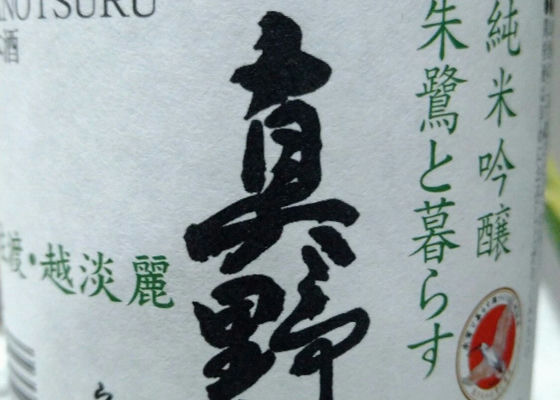 純米吟醸
朱鷺と暮らす
真野
NOTSURU
酒
渡・越淡麗